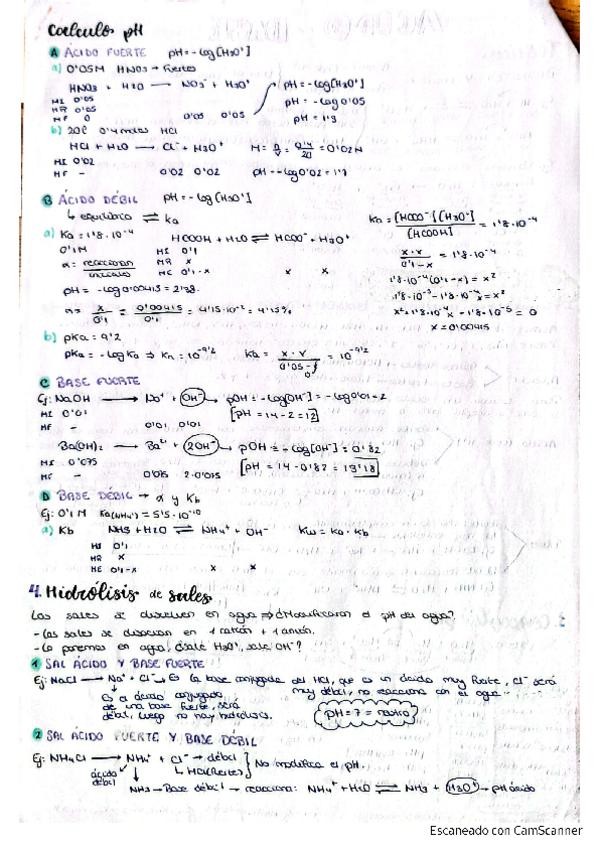 Cálculo pH
A ÁCIDO FUERTE pH=-log[H3O+]
a) 0'05M HNO3 → fuertes
HNO3 + H2O → NO3- + H3O+ pH=-log[H3O+]
MI 0'05 pH = -log 0'05
MR 0'05
MF 0 0'05 0'05 pH = 1'3
b) 20l 0'4 moles HCl
HCl + H2O → Cl- + H3O+ M= n/V = 0'4/20 = 0'02M
MI 0'02
MF - 0'02 0'02 pH=-log0'02=1'7
B ÁCIDO DÉBIL pH=-log[H3O+]
↳ equilibrio ⇌ Ka Ka = [HCOO-][H3O+]/[HCOOH] = 1'8·10-4
a) Ka = 1'8·10-4 HCOOH + H2O ⇌ HCOO- + H3O+
0'1M MI 0'1 x·x/0'1-x = 1'8·10-4
α = reaccionan/iniciales MR x
ME 0'1-x x x 1'8·10-4(0'1-x) = x2
pH = -log0'00415 = 2'38 1'8·10-5 - 1'8·10-4x = x2
x2 + 1'8·10-4x - 1'8·10-5 = 0
α = x/0'1 = 0'00415/0'1 = 4'15·10-2 = 4'15% x = 0'00415
b) pKa = 9'2
pKa = -logKa ⇒ Ka = 10-9'2 Ka = x·x/0'05-x = 10-9'2
C BASE FUERTE
Ej: NaOH → Na+ + OH- → pOH = -log[OH-] = -log0'01=2
MI 0'01 [pH = 14-2 = 12]
MF - 0'01 0'01
Ba(OH)2 → Ba2+ + 2OH- → pOH = -log[OH-] = 0'82
MI 0'075 [pH = 14-0'82 = 13'18]
MF - 0'075 2·0'075
D BASE DÉBIL → α y Kb
Ej: 0'1 M Ka(NH4+) = 5'5·10-10
a) Kb NH3 + H2O ⇌ NH4+ + OH- Kw = Ka·Kb
MI 0'1
MR x
ME 0'1-x x x
4. Hidrólisis de sales
Las sales se disuelven en agua ⇒ ¿Modificaran el pH del agua?
- Las sales se disocian en 1 catión + 1 anión.
- La ponemos en agua, ¿sale H3O+, sale OH-?
1 SAL ÁCIDO Y BASE FUERTE
Ej: NaCl → Na+ + Cl- → Es la base conjugada del HCl, que es un ácido muy fuerte, Cl- será
muy débil, no reacciona con el agua
Es el ácido conjugado
de una base fuerte, será
débil, luego no hay hidrólisis.
pH = 7 = neutro
2 SAL ÁCIDO FUERTE Y BASE DÉBIL
Ej: NH4Cl → NH4+ + Cl- → débil
↳ HCl(fuerte) No modifica el pH.
ácido
débil
NH3 → Base débil → reacciona: NH4+ + H2O ⇌ NH3 + H3O+ → pH ácido
Escaneado con CamScanner